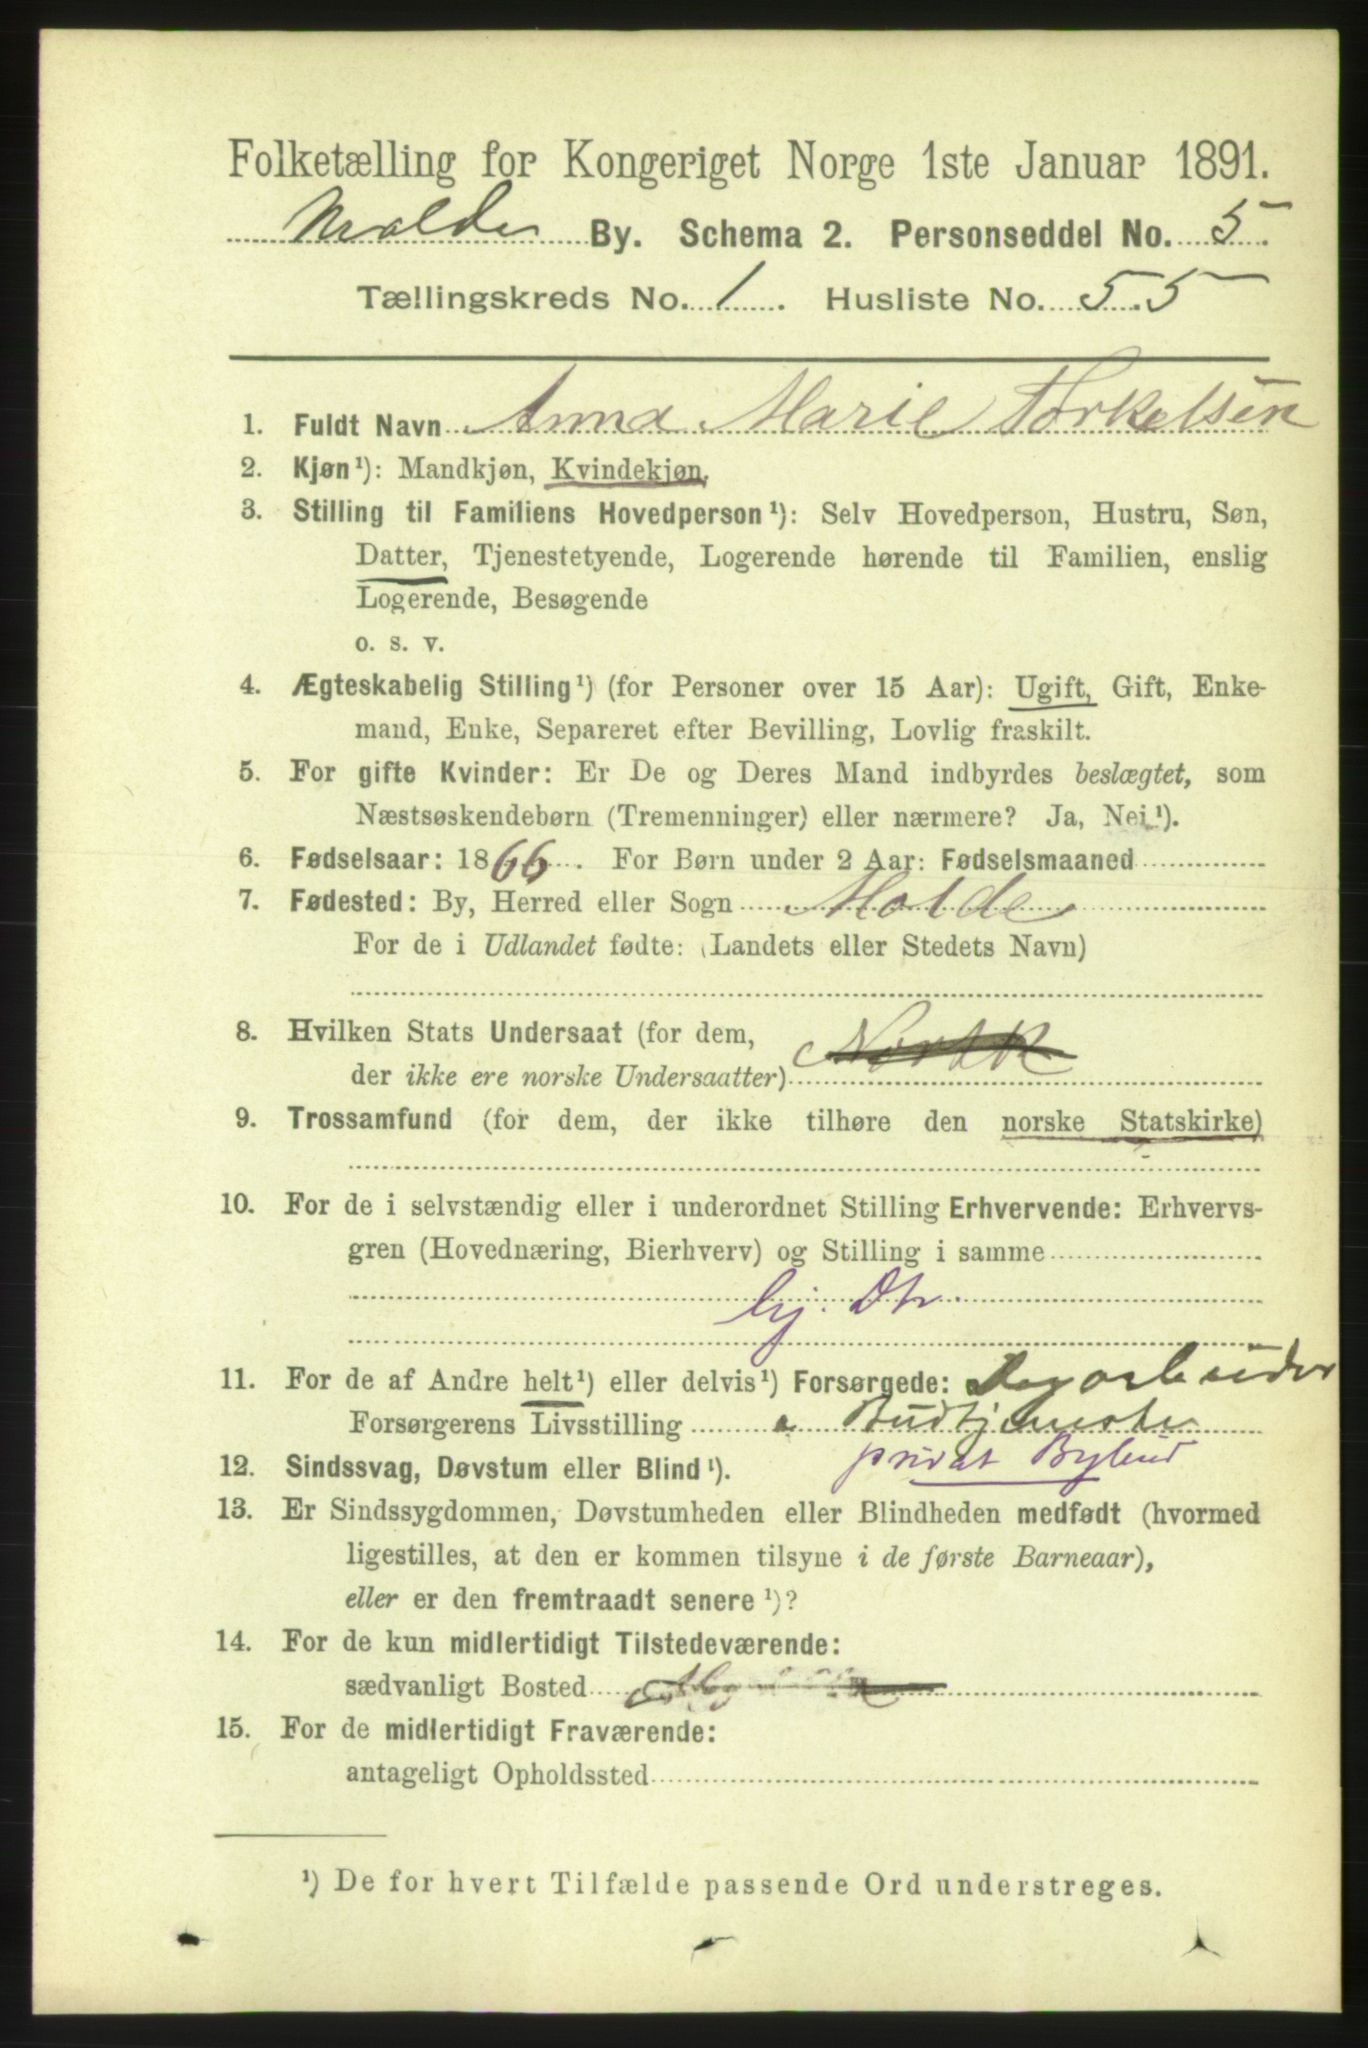 Folketælling for Kongeriget Norge 1ste Januar 1891.
Molde By. Schema 2. Personseddel No. 5.
Tællingskreds No. 1. Husliste No. 55
1. Fuldt Navn Anna Marie Torkelsen
2. Kjøn¹): Mandkjøn, Kvindekjøn.
3. Stilling til Familiens Hovedperson¹): Selv Hovedperson, Hustru, Søn,
Datter, Tjenestetyende, Logerende hørende til Familien, enslig
Logerende, Besøgende
o. s. v.
4. Ægteskabelig Stilling¹) (for Personer over 15 Aar): Ugift, Gift, Enke-
mand, Enke, Separeret efter Bevilling, Lovlig fraskilt.
5. For gifte Kvinder: Er De og Deres Mand indbyrdes beslægtet, som
Næstsøskendebørn (Tremenninger) eller nærmere? Ja, Nei¹).
6. Fødselsaar: 1866. For Børn under 2 Aar: Fødselsmaaned
7. Fødested: By, Herred eller Sogn Molde
For de i Udlandet fødte: (Landets eller Stedets Navn)
8. Hvilken Stats Undersaat (for dem, Norsk
der ikke ere norske Undersaatter)
9. Trossamfund (for dem, der ikke tilhøre den norske Statskirke)
10. For de i selvstændig eller i underordnet Stilling Erhvervende: Erhvervs-
gren (Hovednæring, Bierhverv) og Stilling i samme
hj. Dtr.
11. For de af Andre helt¹) eller delvis¹) Forsørgede: Dagarbeider
Forsørgerens Livsstilling Budtjeneste
privat Bybud
12. Sindssvag, Døvstum eller Blind¹).
13. Er Sindssygdommen, Døvstumheden eller Blindheden medfødt (hvormed
ligestilles, at den er kommen tilsyne i de første Barneaar),
eller er den fremtraadt senere¹)?
14. For de kun midlertidigt Tilstedeværende:
sædvanligt Bosted
15. For de midlertidigt Fraværende:
antageligt Opholdssted
¹) De for hvert Tilfælde passende Ord understreges.